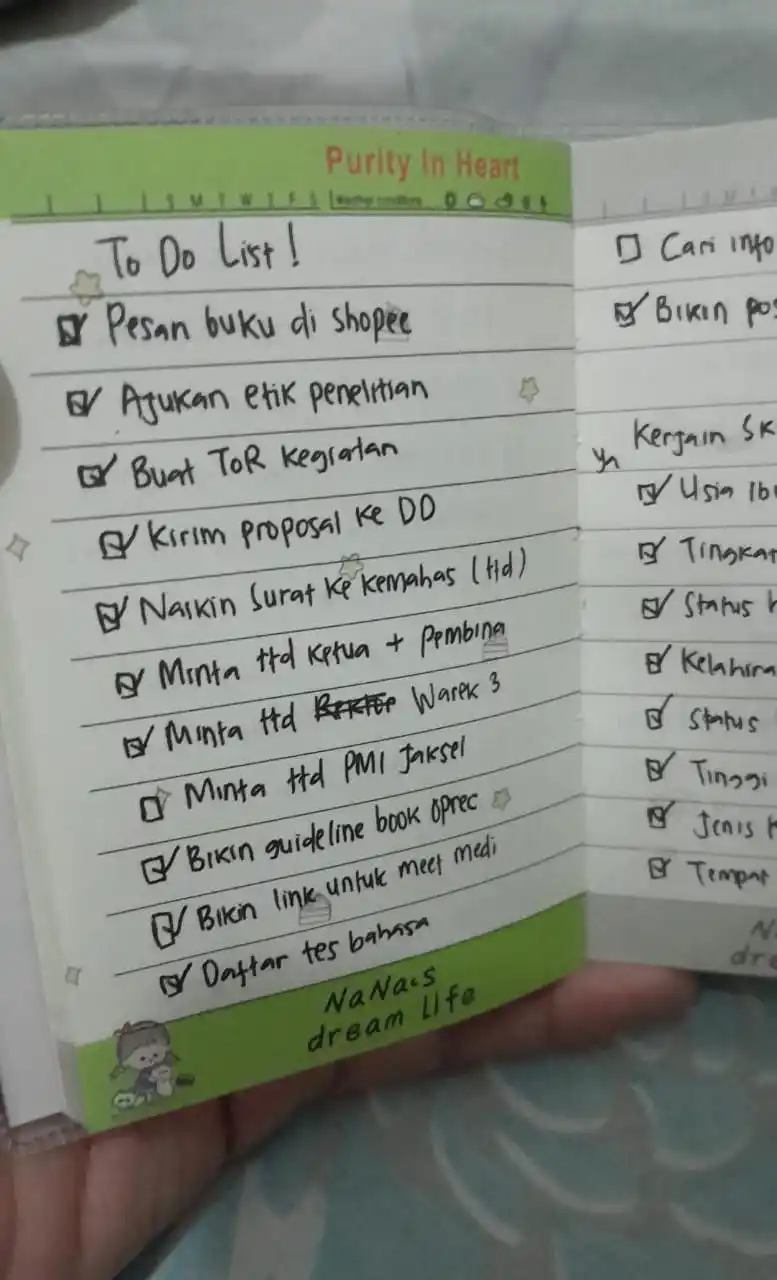 Purity In Heart
S M T W T F S Weather conditions
To Do List!
Pesan buku di shopee
Ajukan etik penelitian
Buat TOR kegiatan
Kirim proposal ke DD
Naikin Surat ke kemahas (ttd)
Minta ttd ketua + pembina
Minta ttd Warek 3
Minta ttd PMI Jaksel
Bikin guideline book oprec
Bikin link untuk meet medi
Daftar tes bahasa
NaNa's
dream life
Cari info
Bikin pos
Kerjain Sk
Usia Ibu
Tingkat
Status
Kelahira
Status
Tinggi
Jenis k
Tempat
N
dre